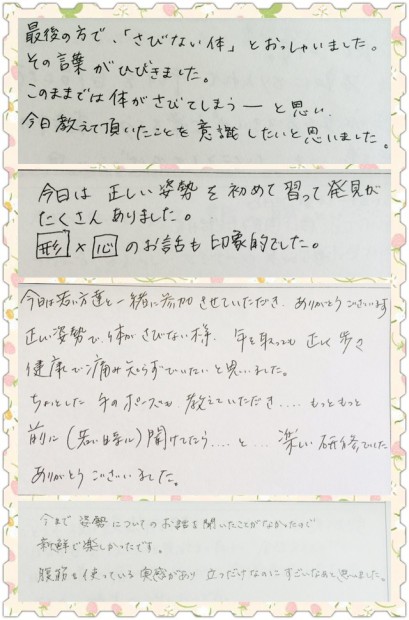 最後の方で、「さびない体」とおっしゃいました。
その言葉がひびきました。
このままでは体がさびてしまうーと思い
今日教えて頂いたことを意識したいと思いました。
今日は正しい姿勢を初めて習って発見が
たくさんありました。
形×心のお話も印象的でした。
今日は若い方達と一緒に参加させていただき、ありがとうございます
正しい姿勢で、体がさびない様、年を取っても正しく歩き
健康で痛み知らずでいたいと思いました。
ちょっとした手のポーズも教えていただき....もっともっと
前に(若い時に)聞けてたら....と...楽しい研修でした
ありがとうございました。
今まで姿勢についてのお話を聞いたことがなかったので
新鮮で楽しかったです。
腹筋を使っている実感があり立つだけなのにすごいなぁと思いました。